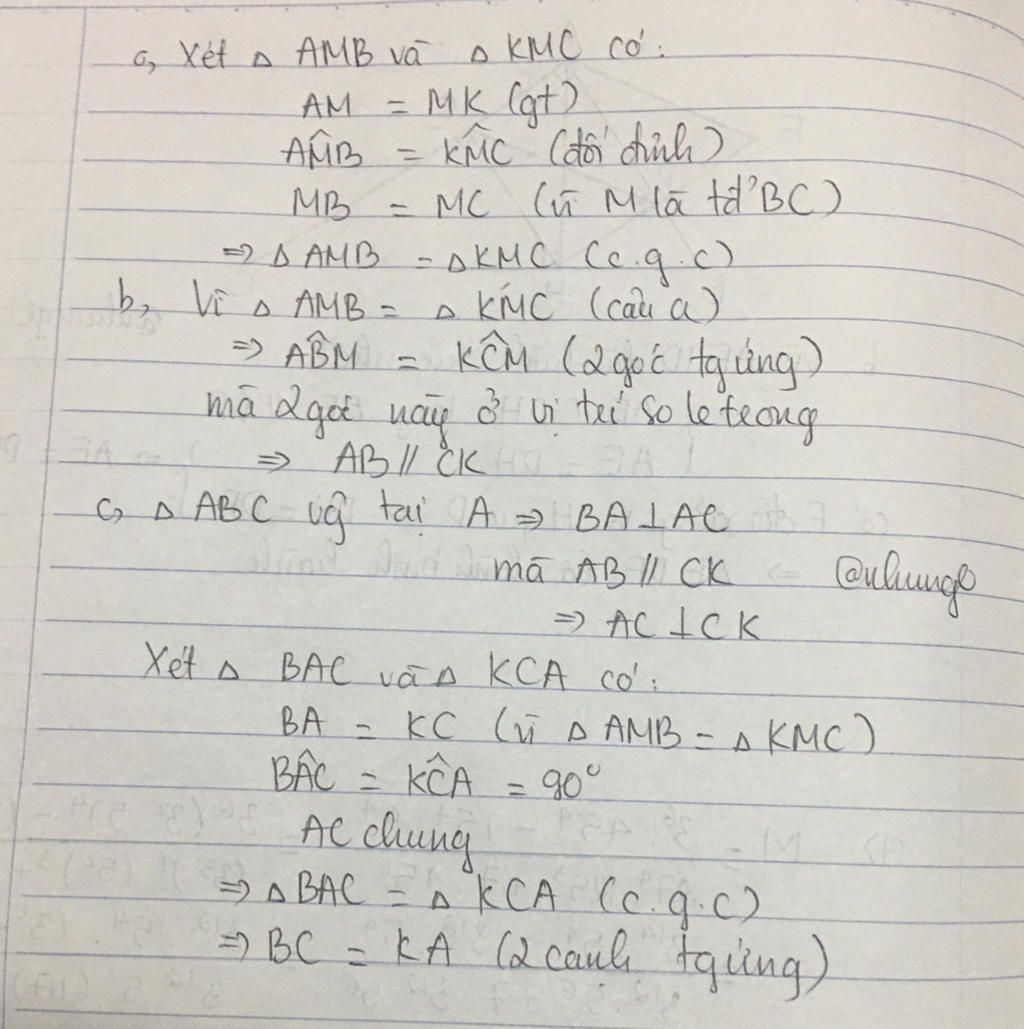 a, Xét Δ AMB và Δ KMC có:
AM = MK (gt)
AM̂B = KM̂C (đối đỉnh)
MB = MC (vì M là tđ' BC)
=> Δ AMB = Δ KMC (c.g.c)
b, Vì Δ AMB = Δ KMC (câu a)
=> AB̂M = KĈM (2 góc tg ứng)
mà 2 góc này ở vị trí so le trong
=> AB // CK
c, Δ ABC vg tại A => BA ⊥ AC
mà AB // CK
@nhung
=> AC ⊥ CK
Xét Δ BAC và Δ KCA có:
BA = KC (vì Δ AMB = Δ KMC)
BÂC = KĈA = 90°
AC chung
=> Δ BAC = Δ KCA (c.g.c)
=> BC = KA (2 cạnh tg ứng)